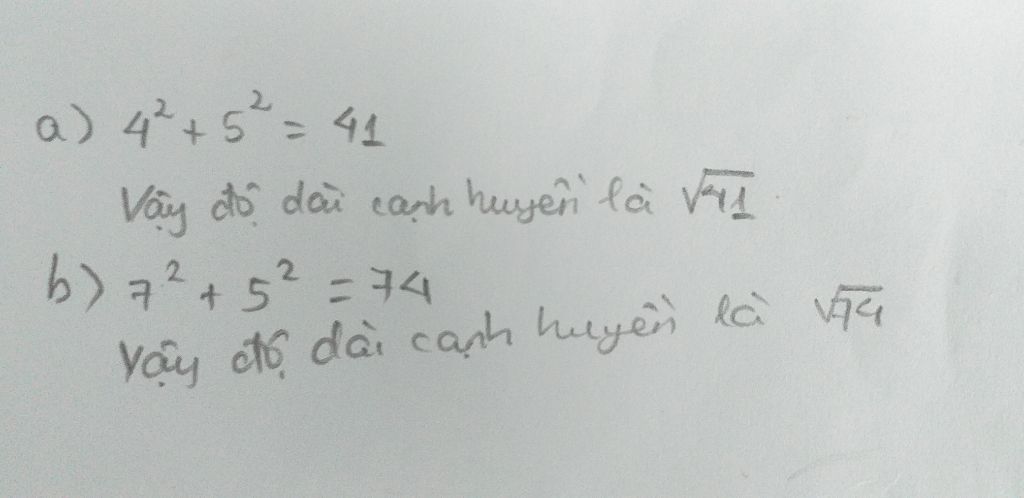 a) 4² + 5² = 41
Vậy độ dài cạnh huyền là √41
b) 7² + 5² = 74
Vậy độ dài cạnh huyền là √74